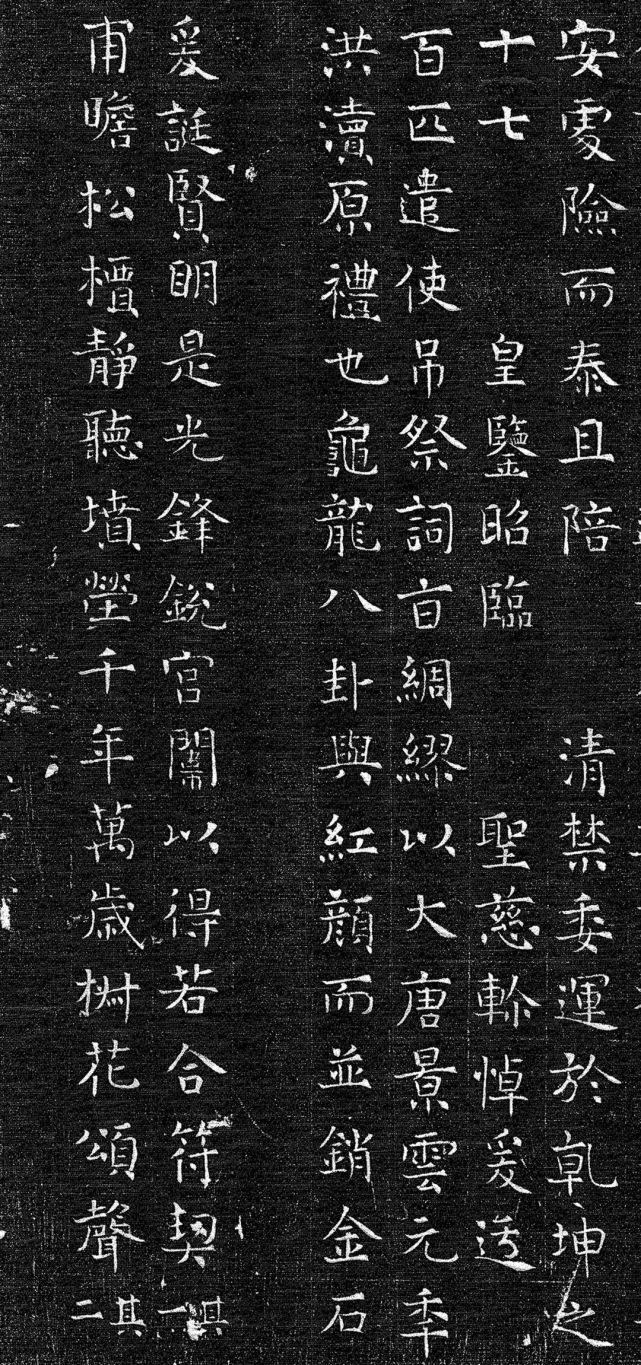 安處險而泰且陪 清禁委運於乹坤之
十七 皇鑒昭臨 聖慈軫悼爰造
百匹遣使吊祭詞旨綢繆以大唐景雲元季
洪瀆原禮也龜龍八卦與紅顏而並銷金石
爰誕賢明是光鋒銳宮闈以得若合符契其一
甫瞻松檟靜聽墳塋千年萬歲椒花頌聲其二